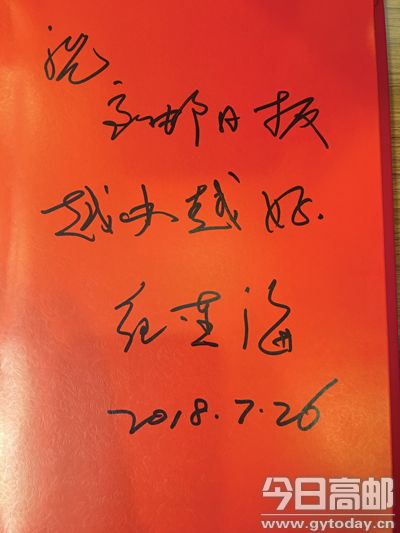 祝
高邮日报
越来越好.
海
2018.7.26
今日高邮
www.gytoday.cn